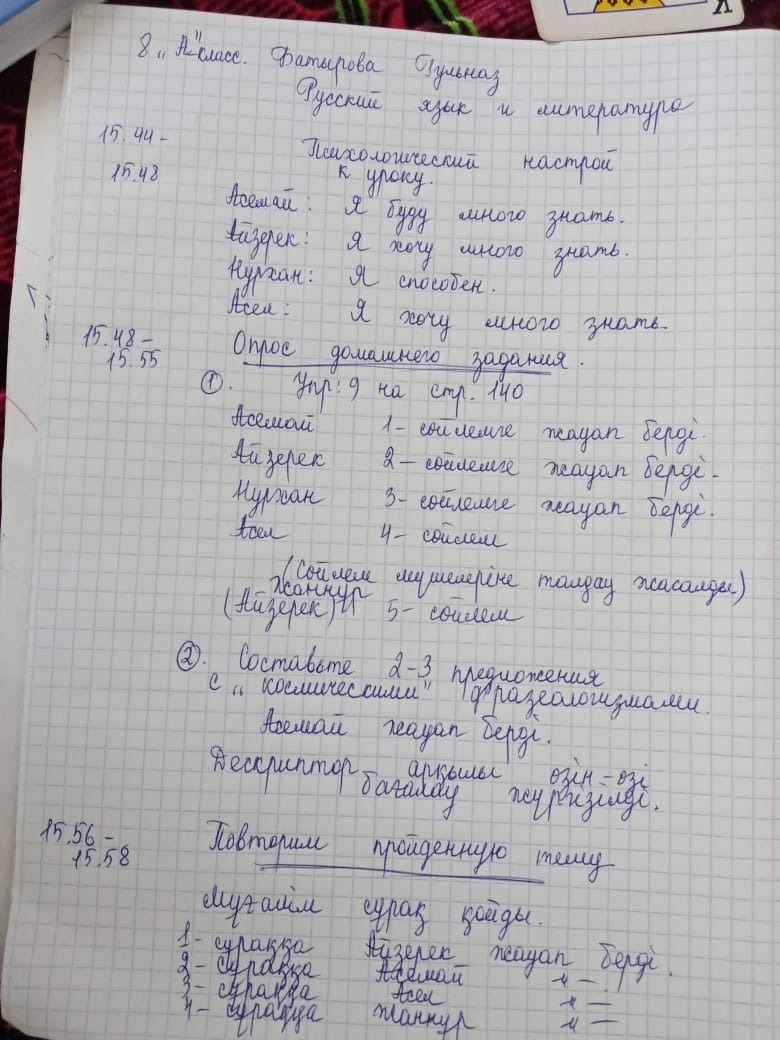 8 "А" класс. Батырова Гульназ
Русский язык и литература
15.44 –
15.48
Психологический настрой
к уроку.
Асемай: Я буду много знать.
Айзерек: Я хочу много знать.
Нурхан: Я способен.
Асел: Я хочу много знать.
15.48 –
15.55
Опрос домашнего задания.
1. Упр: 9 на стр. 140
Асемай 1 – сөйлемге жауап берді.
Айзерек 2 – сөйлемге жауап берді.
Нурхан 3 – сөйлемге жауап берді.
Асел 4 – сөйлем
(Сөйлем мүшелеріне талдау жасалды)
Жаннур
(Айзерек) 5 – сөйлем
2. Составьте 2-3 предложения
с "космическими" фразеологизмами.
Асемай жауап берді.
Дескриптор арқылы өзін-өзі
бағалау жүргізілді.
15.56 –
15.58
Повторим пройденную тему
Мұғалім сұрақ қойды.
1 – сұраққа Айзерек жауап берді.
2 – сұраққа Асемай –〃–
3 – сұраққа Асел –〃–
4 – сұраққа Жаннур –〃–
К